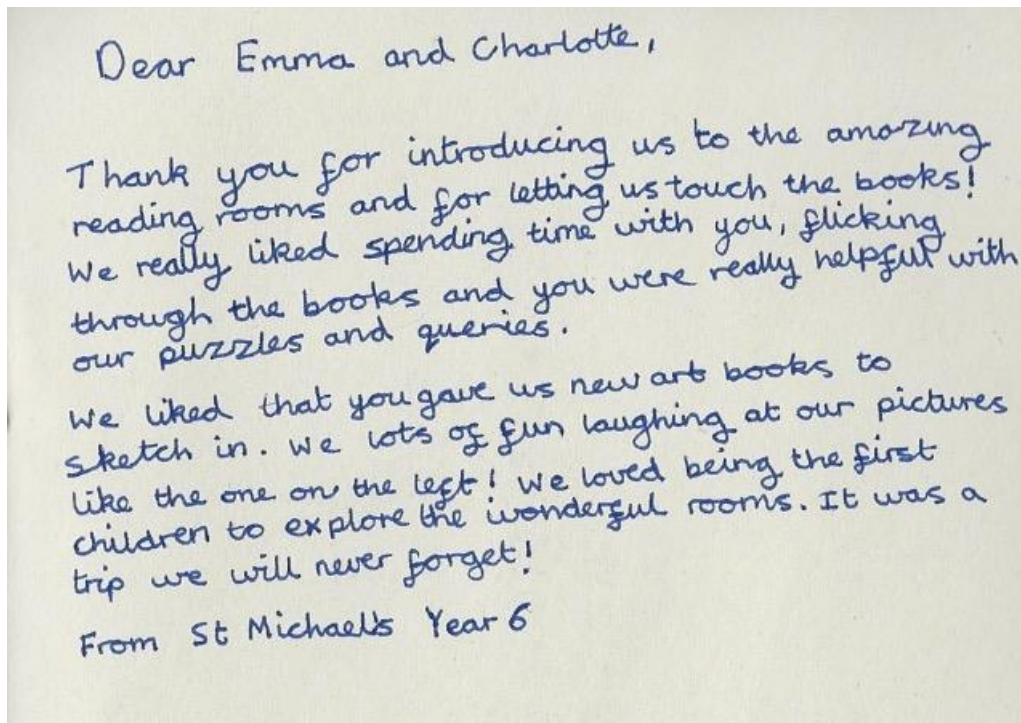 Dear Emma and Charlotte,
Thank you for introducing us to the amazing
reading rooms and for letting us touch the books!
We really liked spending time with you, flicking
through the books and you were really helpful with
our puzzles and queries.
We liked that you gave us new art books to
sketch in. We lots of fun laughing at our pictures
like the one on the left! We loved being the first
children to explore the wonderful rooms. It was a
trip we will never forget!
From St Michael's Year 6